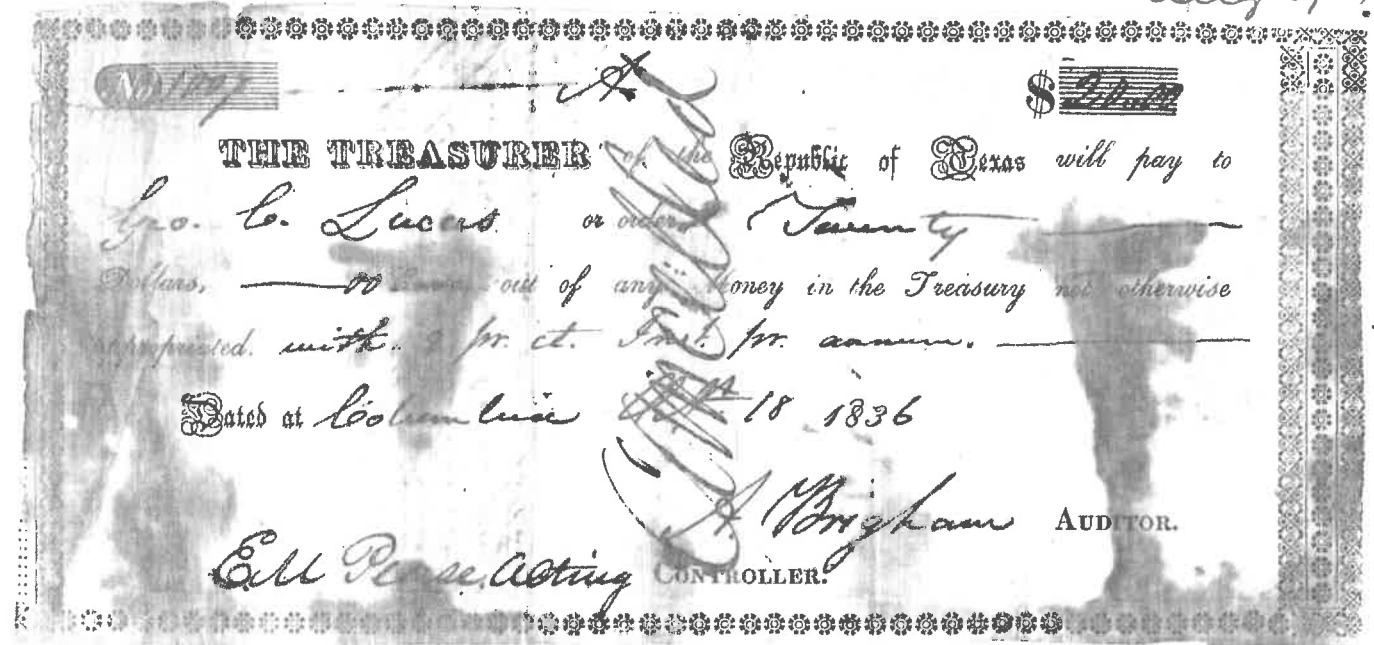 No
A
$ 20.00
THE TREASURER of the Republic of Texas will pay to
Geo. C. Lucas or order Twenty
Dollars, 00 out of any Money in the Treasury not otherwise
appropriated. with pr. ct. Inst. pr. annum.
Dated at Columbia 18 1836
Brigham AUDITOR.
E M Pease, Acting CONTROLLER.